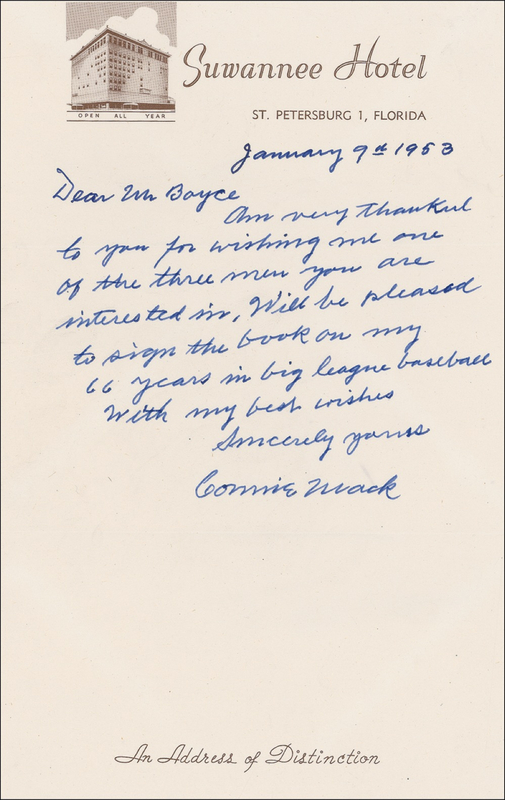 Suwannee Hotel
OPEN ALL YEAR
ST. PETERSBURG 1, FLORIDA
January 9th 1953
Dear Mr Boyce
Am very thankul
to you for wishing me one
of the three men you are
interested in, Will be pleased
to sign the book on my
66 years in big league baseball
With my best wishes
Sincerely yours
Connie Mack
An Address of Distinction